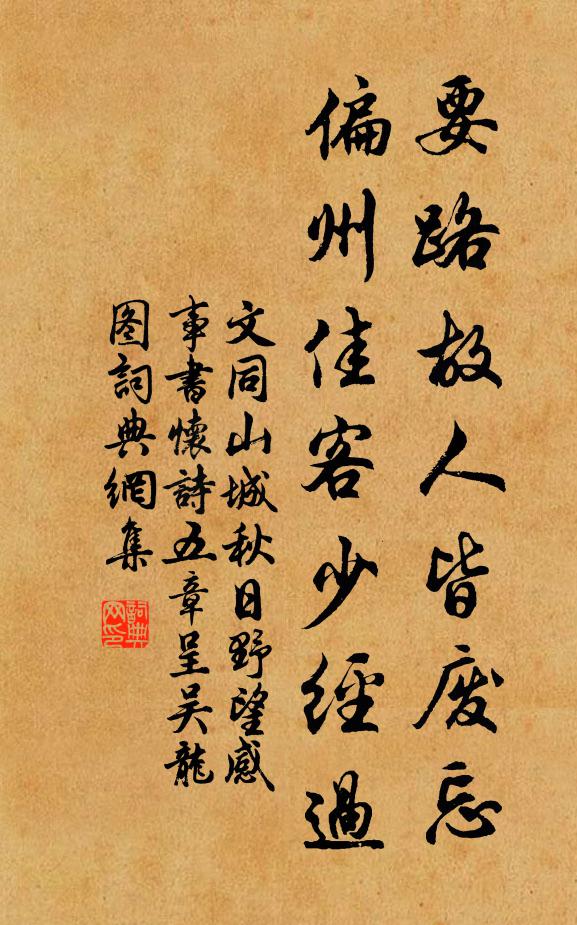 要路故人皆废忘
偏州佳客少經過
文同山城秋日野望感
事書懷詩五章呈吴龍
图詞典網集
詞典网印